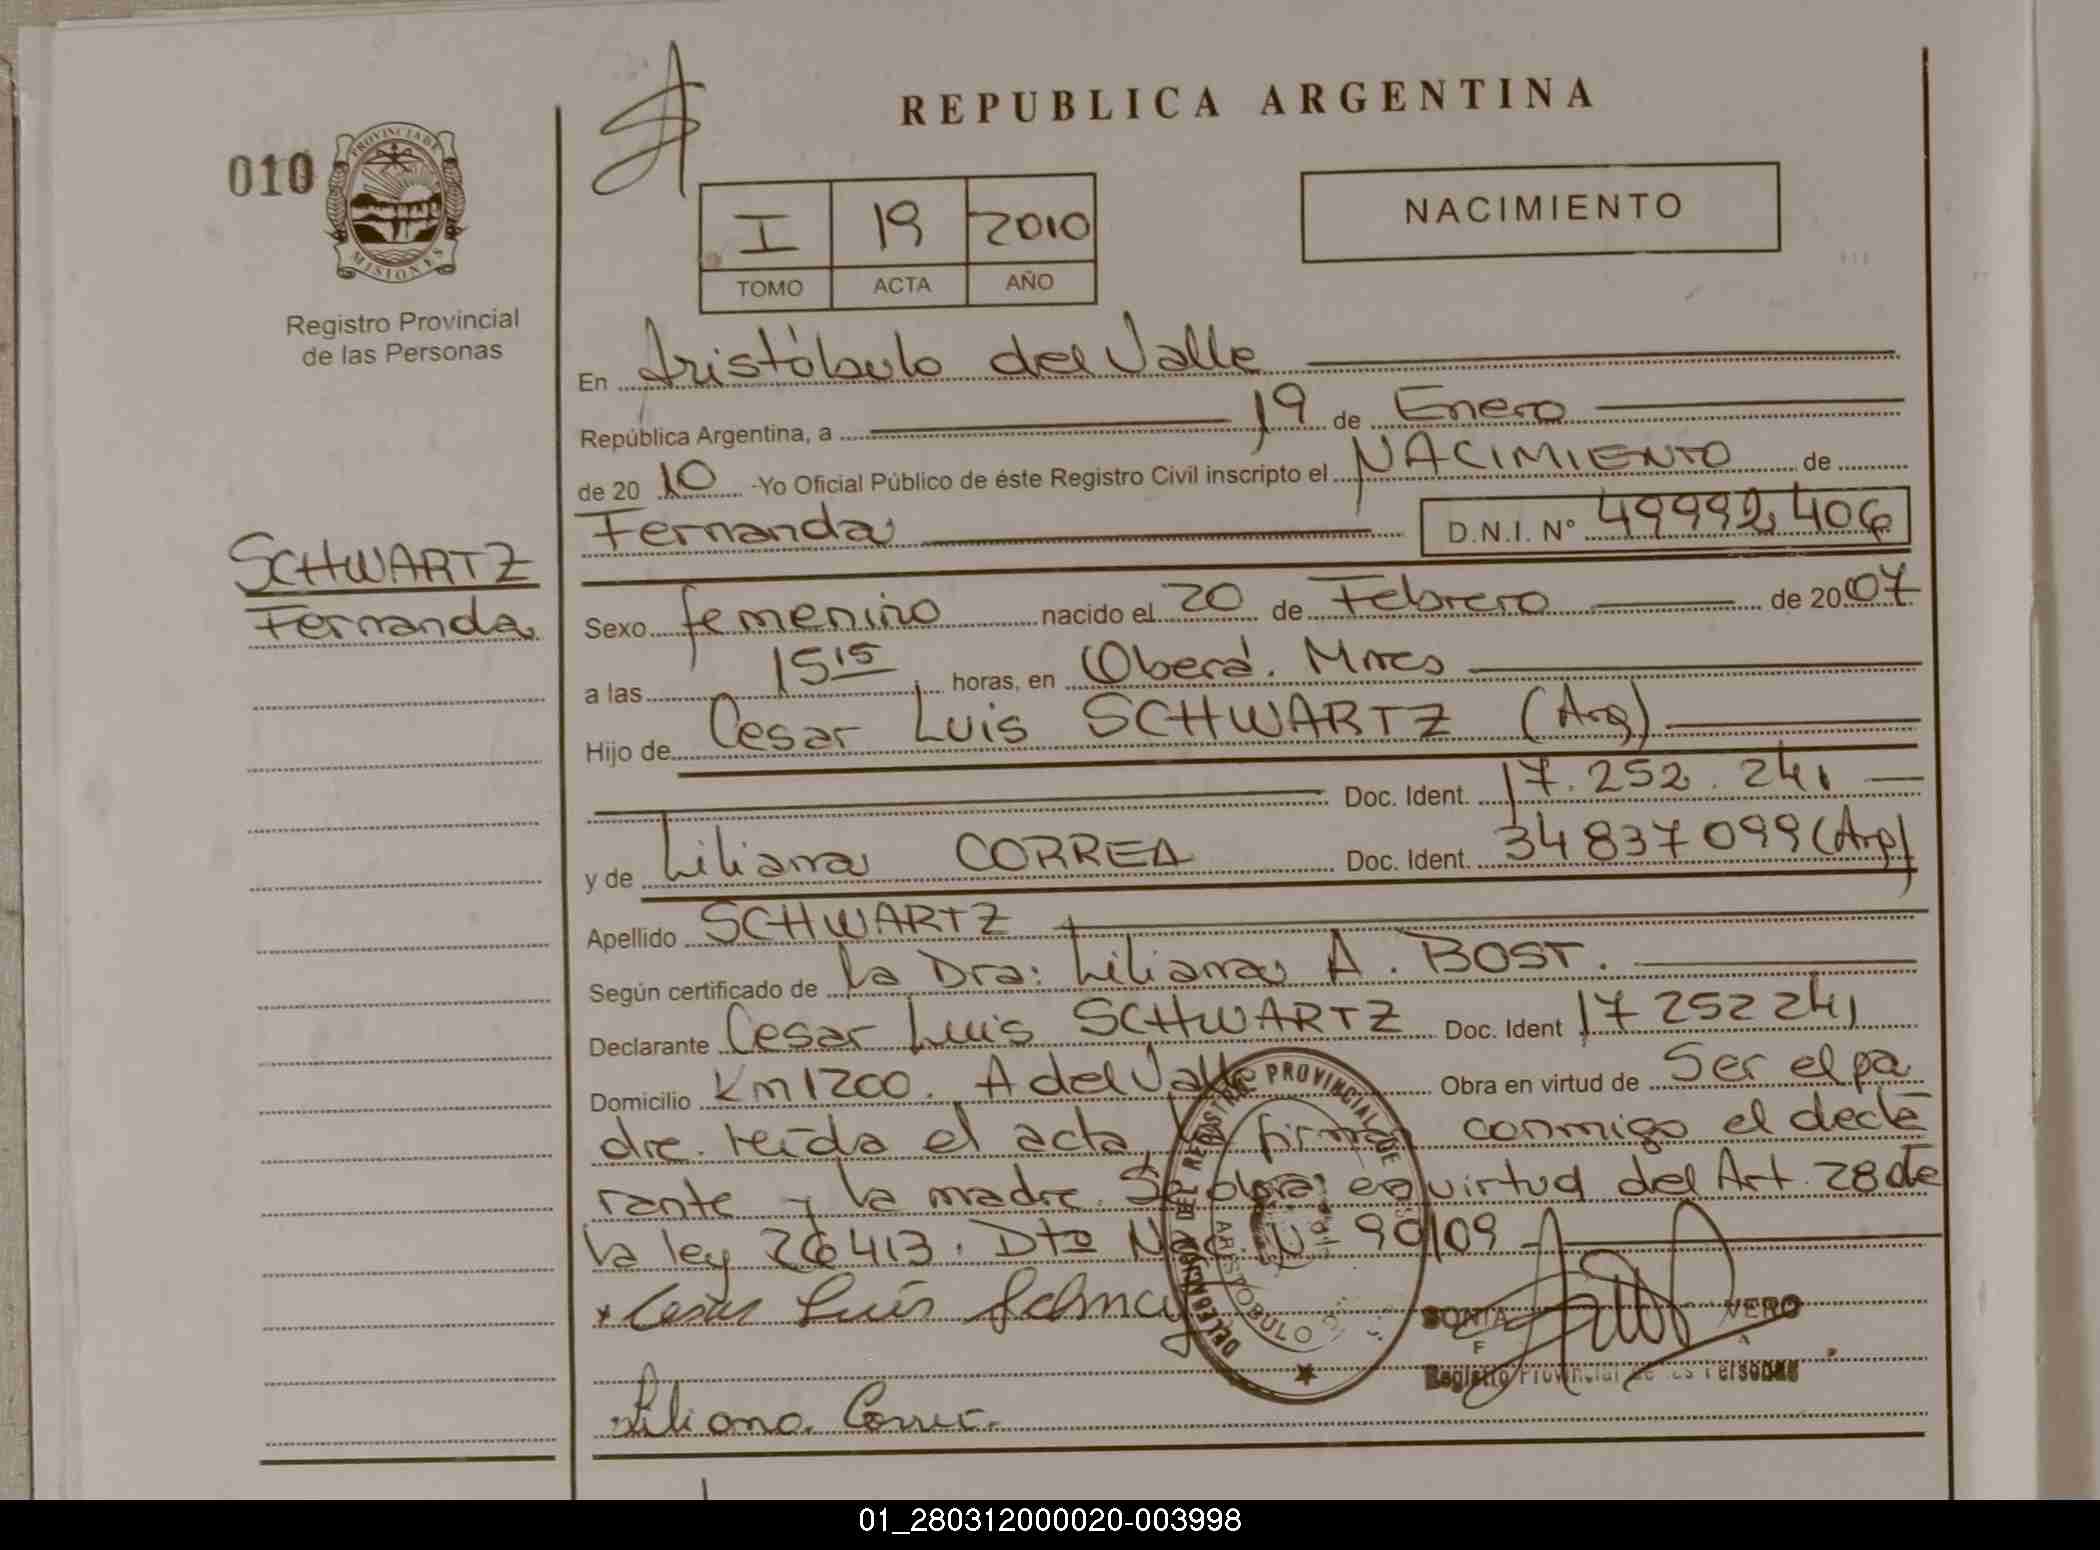 REPUBLICA ARGENTINA
010
PROVINCIA DE
MISIONES
Registro Provincial
de las Personas
I 19 2010
TOMO ACTA AÑO
NACIMIENTO
En Aristóbulo del Valle
República Argentina, a 19 de Enero
de 20 10 -Yo Oficial Público de éste Registro Civil inscripto el NACIMIENTO de
Fernanda D.N.I. Nº 49992406
SCHWARTZ
Fernanda
Sexo femenino nacido el 20 de Febrero de 2007
a las 15 15 horas, en Oberá. Mnes
Hijo de Cesar Luis SCHWARTZ (Arg)
Doc. Ident. 17.252.241
y de Liliana CORREA Doc. Ident. 34837099 (Arg)
Apellido SCHWARTZ
Según certificado de la Dra: Liliana A. BOST.
Declarante Cesar Luis SCHWARTZ Doc. Ident 17252241
Domicilio Km 1200. A del Valle Obra en virtud de Ser el pa
dre. leída el acta, la firman conmigo el decla
rante y la madre. Se obra en virtud del Art. 28 de
la ley 26413. Dto Nac. Nº 90/09
Cesar Luis
DELEGACION DEL REGISTRO PROVINCIAL DE
ARISTOBULO
SONIA VERO
Registro Provincial de las Personas
Liliana Correa
01_280312000020-003998